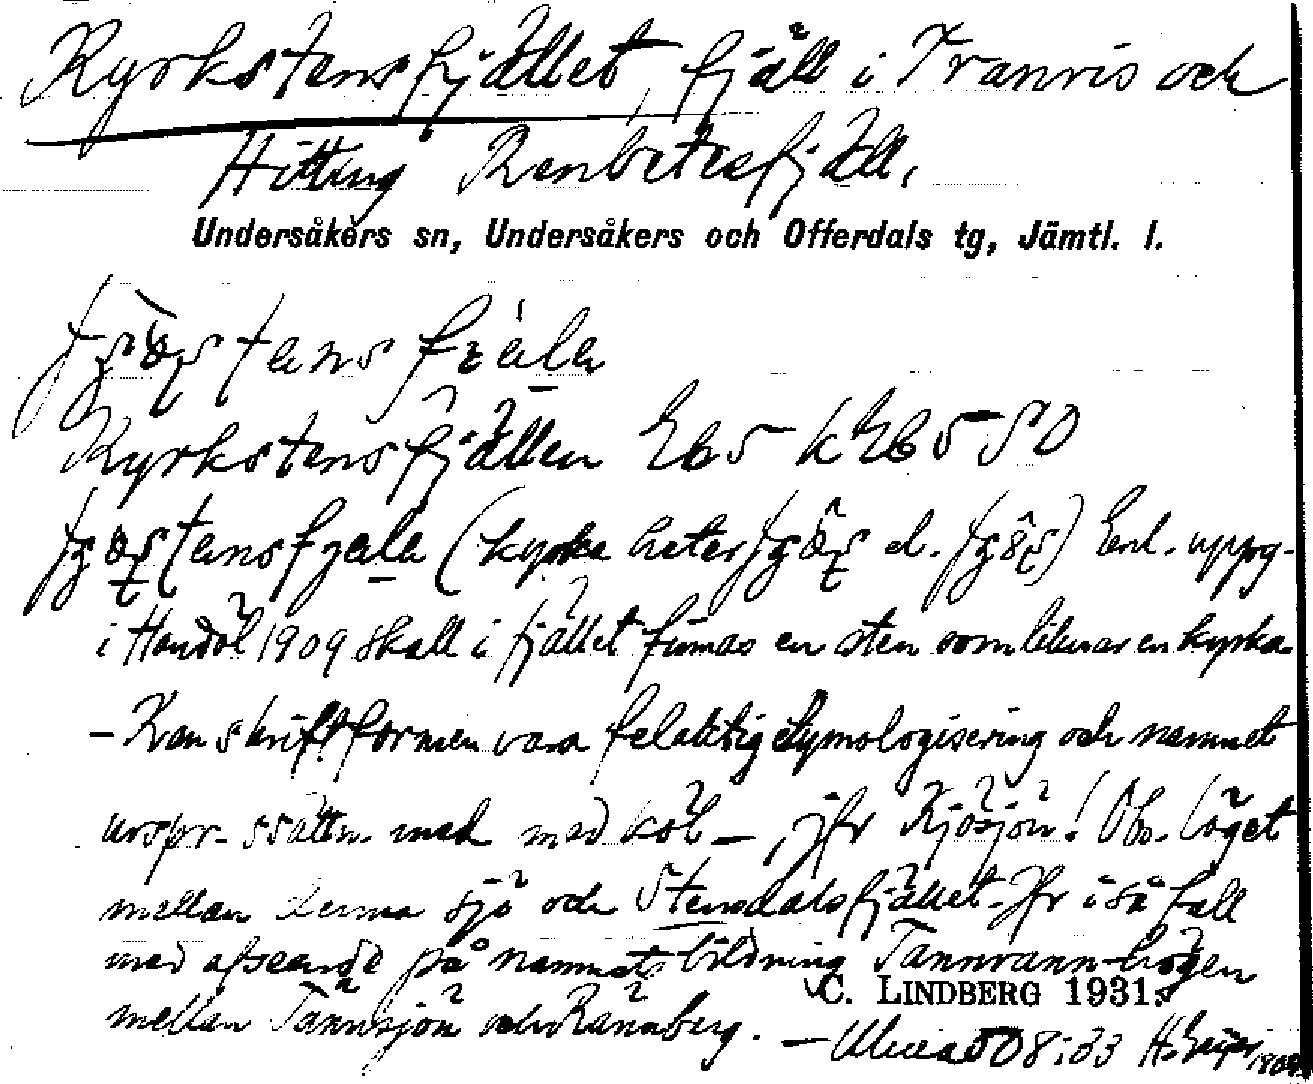 Kyrkstensfjället, fjäll i Tranris och
Hitting Renbetesfjäll,
Undersåkers sn, Undersåkers och Offerdals tg, Jämtl. l.
Kyrkstensfjällen Eb5 kEb5 SO
(kyrka heter el. ) Enl. uppg.
i Handöl 1909 skall i fjället finnas en sten som liknar en kyrka
– Kan skriftformen vara felaktig etymologisering och namnet
urspr. ssättn. med köl –, jfr Kjösjön! Obs. läget
mellan denna sjö och Stensdalsfjället. Jfr i så fall
med afseende på namnets bildning Tannvann-högen
mellan Tännsjön och Rännberg. –
C. LINDBERG 1931.